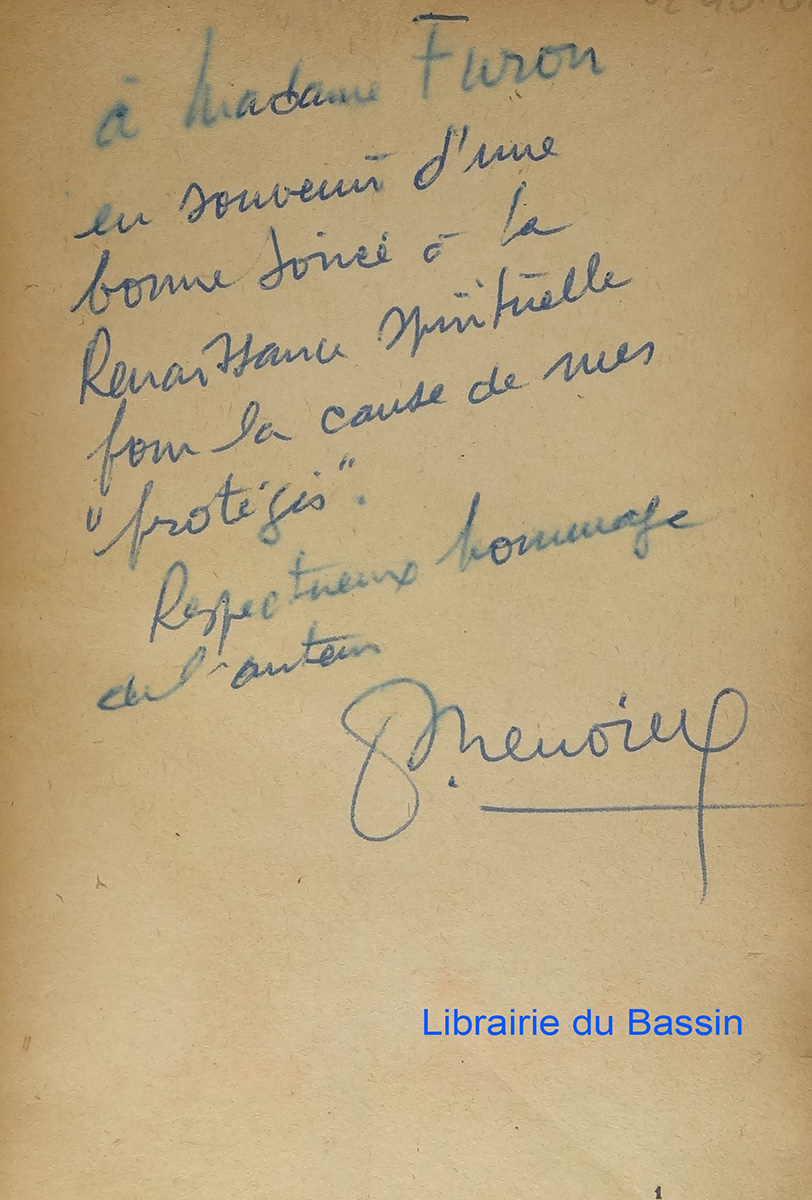 à Madame Furon
en souvenir d'une
bonne soirée à la
Renaissance Spirituelle
pour la cause de mes
"protégés".
Respectueux hommage
de l'auteur
Librairie du Bassin
1